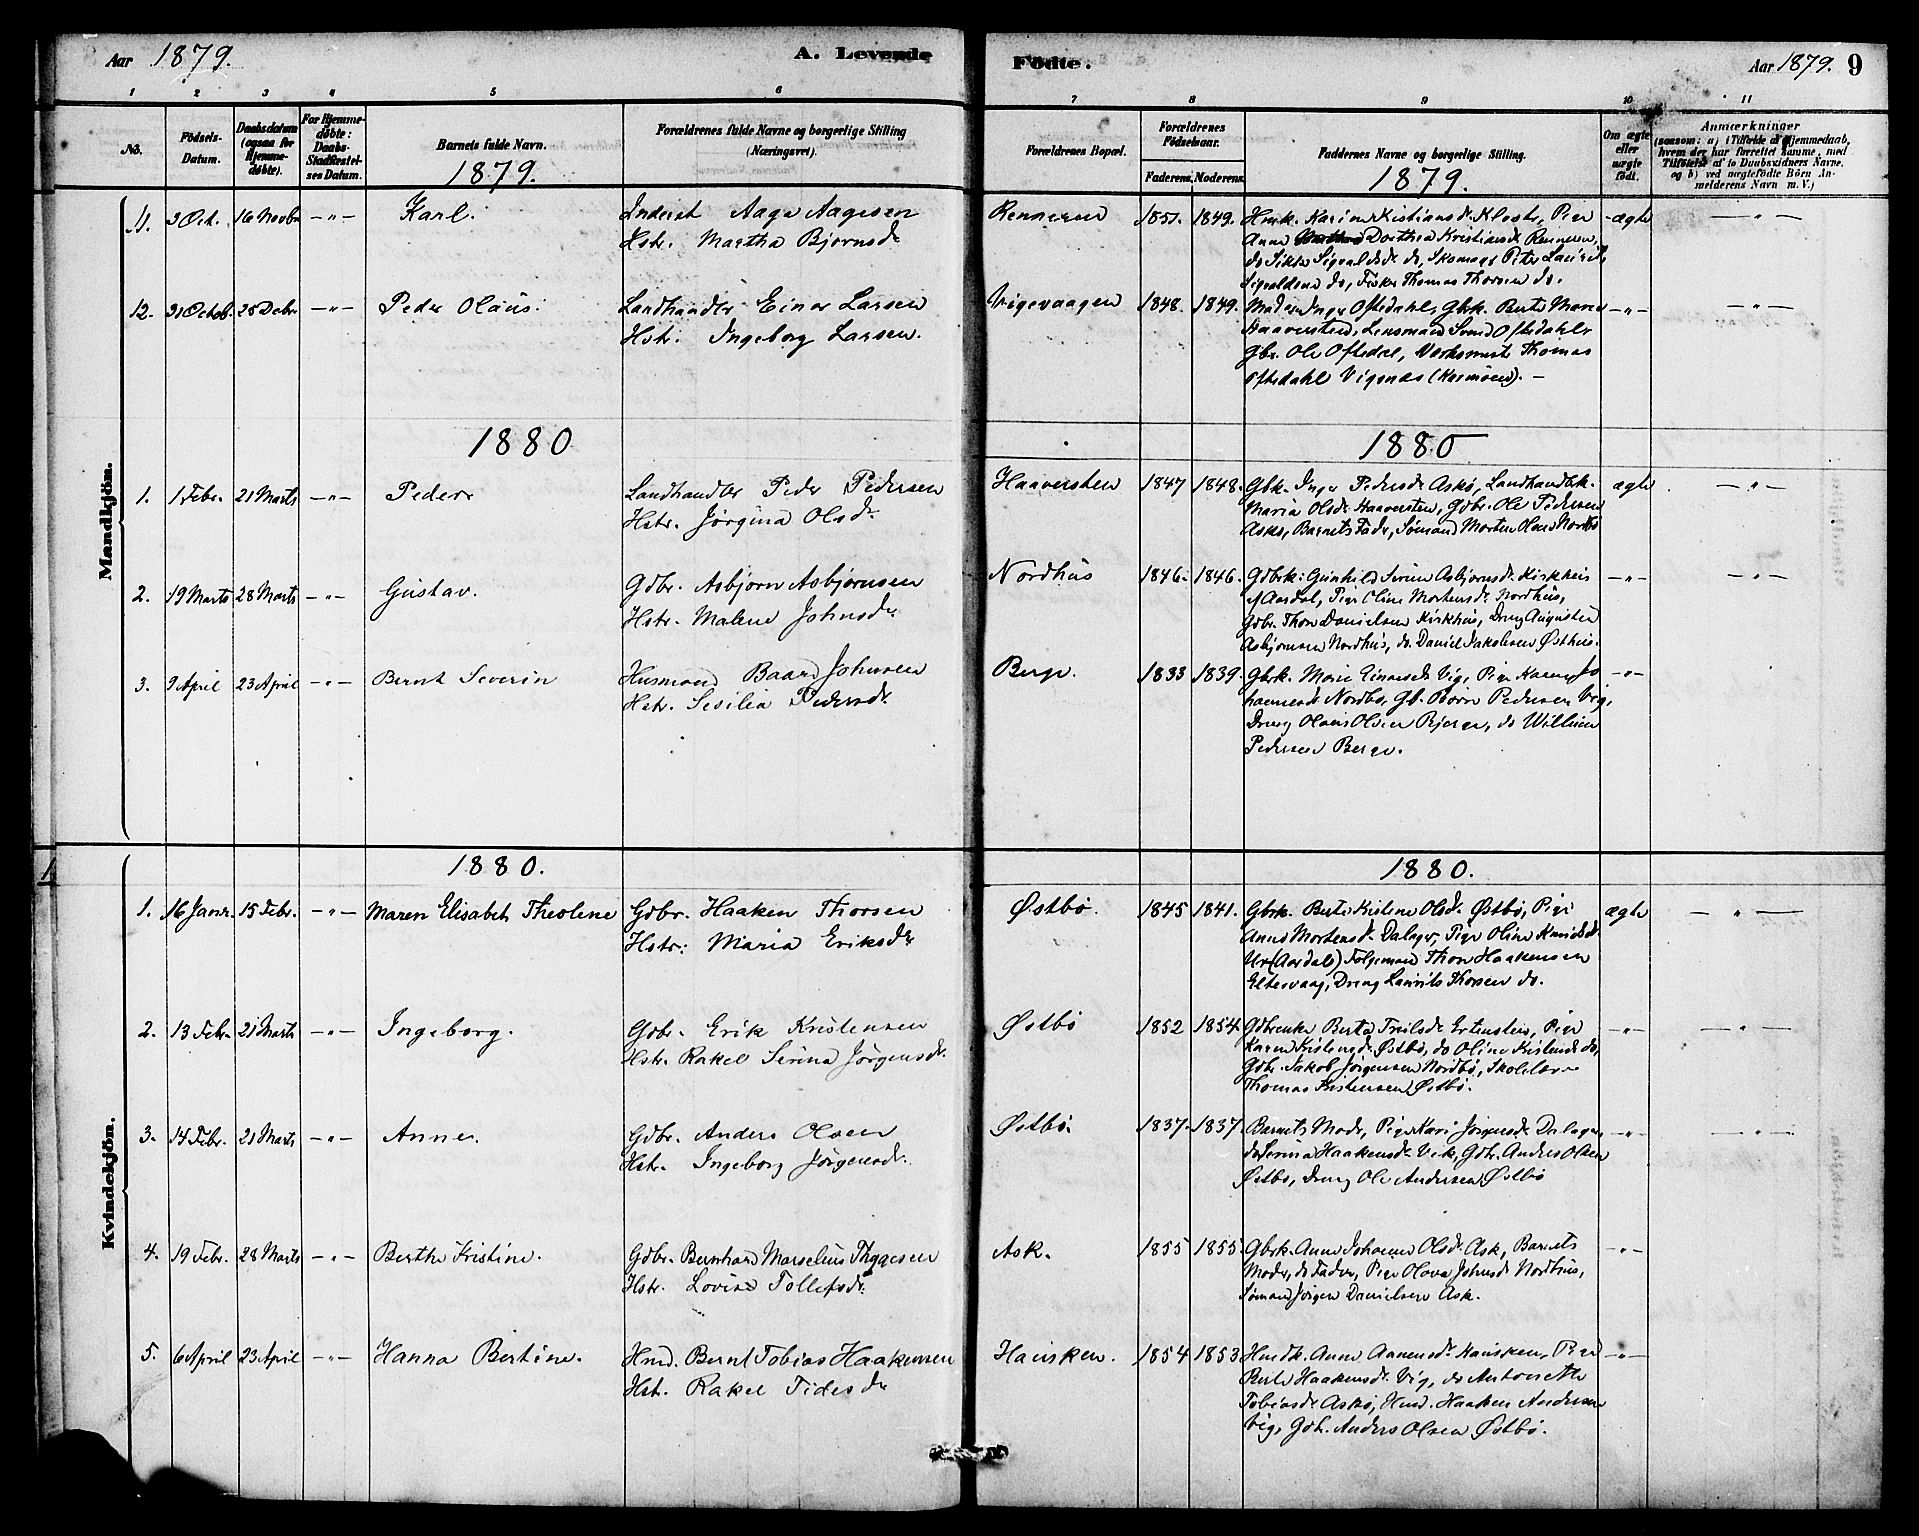 Aar 1879.
A. Levende
Födte.
Aar 1879. 9
1 2 3 4 5 6 7 8 9 10 11
No.
Födsels-Datum.
Daabsdatum (ogsaa for Hjemmedöbte).
For Hjemmedöbte: Daabs-Stadfæstelses Datum.
Barnets fulde Navn.
1879.
Forældrenes fulde Navne og borgerlige Stilling (Næringsvei).
Forældrenes Bopæl.
Forældrenes Födselsaar.
Faderens. Moderens.
Faddernes Navne og borgerlige Stilling.
1879.
Om ægte eller uægte födt.
Anmærkninger
(saasom: a) i Tilfælde af Hjemmedaab, hvem der har forrettet samme, med Tilföielse af to Daabsvidners Navne, og b) ved uægtefödte Börn Anmelderens Navn m. V.)
Mandkjön.
11. 3 Oct. 16 Novbr -"- Karl.
Inderst Aage Aagesen
Hstr. Martha Bjornsdr
Rennesen 1851. 1849.
Hmk. Karine Kistiansdr. Kloster, Pige
Anne Dorthea Kristiansdr Rennesen,
do Sikke Sigvaldsdr do, Skomager Peter Laurits
Sigvaldsen do, Fisker Thomas Thorsen do.
ægte -"-
12. 31 Octob. 25 Debr -"- Peder Olaüs.
Landhandler Einar Larsen
Hstr. Ingeborg Larsen.
Vigevaagen 1848. 1849.
Madam Inger Oftedahl, Gbk. Berte Marie
Haaversten, Lensmand Svend Oftedahl
Gbr. Ole Oftedal, Værksmest Thomas
Oftedahl Vigsnæs (Karmöen). -
-"- -"-
1880
1880
1. 1 Febr. 21 Marts -"- Peder
Landhandler Peder Pedersen
Hstr. Jörgina Olsdr.
Haaversten 1847 1848.
Gbk. Inger Pedersdr Askö, Landhandlk.
Maria Olsdr Haaversten, Gdbr. Ole Pedersen
Askö, Barnets Fader, Sömand Morten Olsen Nordbö
ægte -"-
2. 19 Marts 28 Marts -"- Güstav.
Gdbr. Asbjorn Asbjornsen
Hstr. Malene Johnsdr
Nordhüs 1846. 1846.
Gdbrk: Gunhild Serine Asbjornsdr Kirkhus
i Aardal, Pige Oline Mortensdr. Nordhüs,
Gdbr. Thore Danielsen Kirkhüs, Dreng Augustin
Asbjornsen Nordhüs, do. Daniel Jakobsen Østhus.
-"- -"-
3. 9 April 23 April -"- Bernt Severin
Husmand Baard Johnsen
Hstr. Sesilia Pedersdr.
Berge. 1833 1839.
Gbrk. Marie Einarsdr Vig, Pige Karen Jo
hannesdr Nordbö, Gb. Björn Pedersen Vig,
Dreng Olaus Olsen Bjerge, do William
Pedersen Berge.
-"-
Kvindekjön.
1
1880.
1880.
1. 16 Janr. 15 Febr. -"- Maren Elisabet Theoline
Gdbr. Haaken Thorsen
Hstr: Maria Eriksdr
Østbö. 1845 1841.
Gbrk. Berte Kristine Olsdr. Østbö, Pige
Anne Mortensdr. Dalager, Pige Oline Knudsdr.
Ur (Aardal) Folgemand Thore Haakensen
Eltervaag, Dreng Laurits Thorsen do.
ægte -"-
2. 13 Febr. 21 Marts -"- Ingeborg.
Gdbr. Erik Kristensen
Hstr. Rakel Serina Jörgensdr.
Østbö 1852 1854.
Gdbrenke Berta Truilsdr Ertenstein, Pige
Karen Kristensdr Østbö, do Oline Kistensdr do,
Gdbr. Jakob Jörgensen Nordbö, Skolelærer
Thomas Kristensen Østbö.
-"- -"-
3. 14 Febr. 21 Marts -"- Anne.
Gdbr. Anders Olsen
Hstr. Ingeborg Jörgensdr.
Østbö. 1837. 1837.
Barnets Moder, Pige Kari Jörgensdr Dalager,
do Serina Haakensdr. Vik, Gdbr. Anders Olsen
Østbö, Dreng Ole Andersen Østbö
-"- -"-
4. 19 Febr. 28 Marts -"- Berthe Kristine.
Gdbr. Bernhard Marselius Thygesen
Hstr. Lovise Tollefsdr.
Ask. 1855 1855.
Gbrk. Anne Johanne Olsdr. Ask, Barnets
Moder, do Fader, Pige Olava Johnsdr Nordhüs,
Sömand Jörgen Danielsen Ask.
-"-
5. 6 April 23 April -"- Hanna Bertine.
Hmd. Bernt Tobias Haakensen
Hst. Rakel Tidesdr
Hausken. 1854 1853
Hmdk. Anne Aanensdr. Hausken, Pige
Berte Haakensdr. Vig, do Antonette
Tobiasdr Askö, Hmd. Haaken Andersen
Vig, Gdbr. Anders Olsen Østbö.
-"-